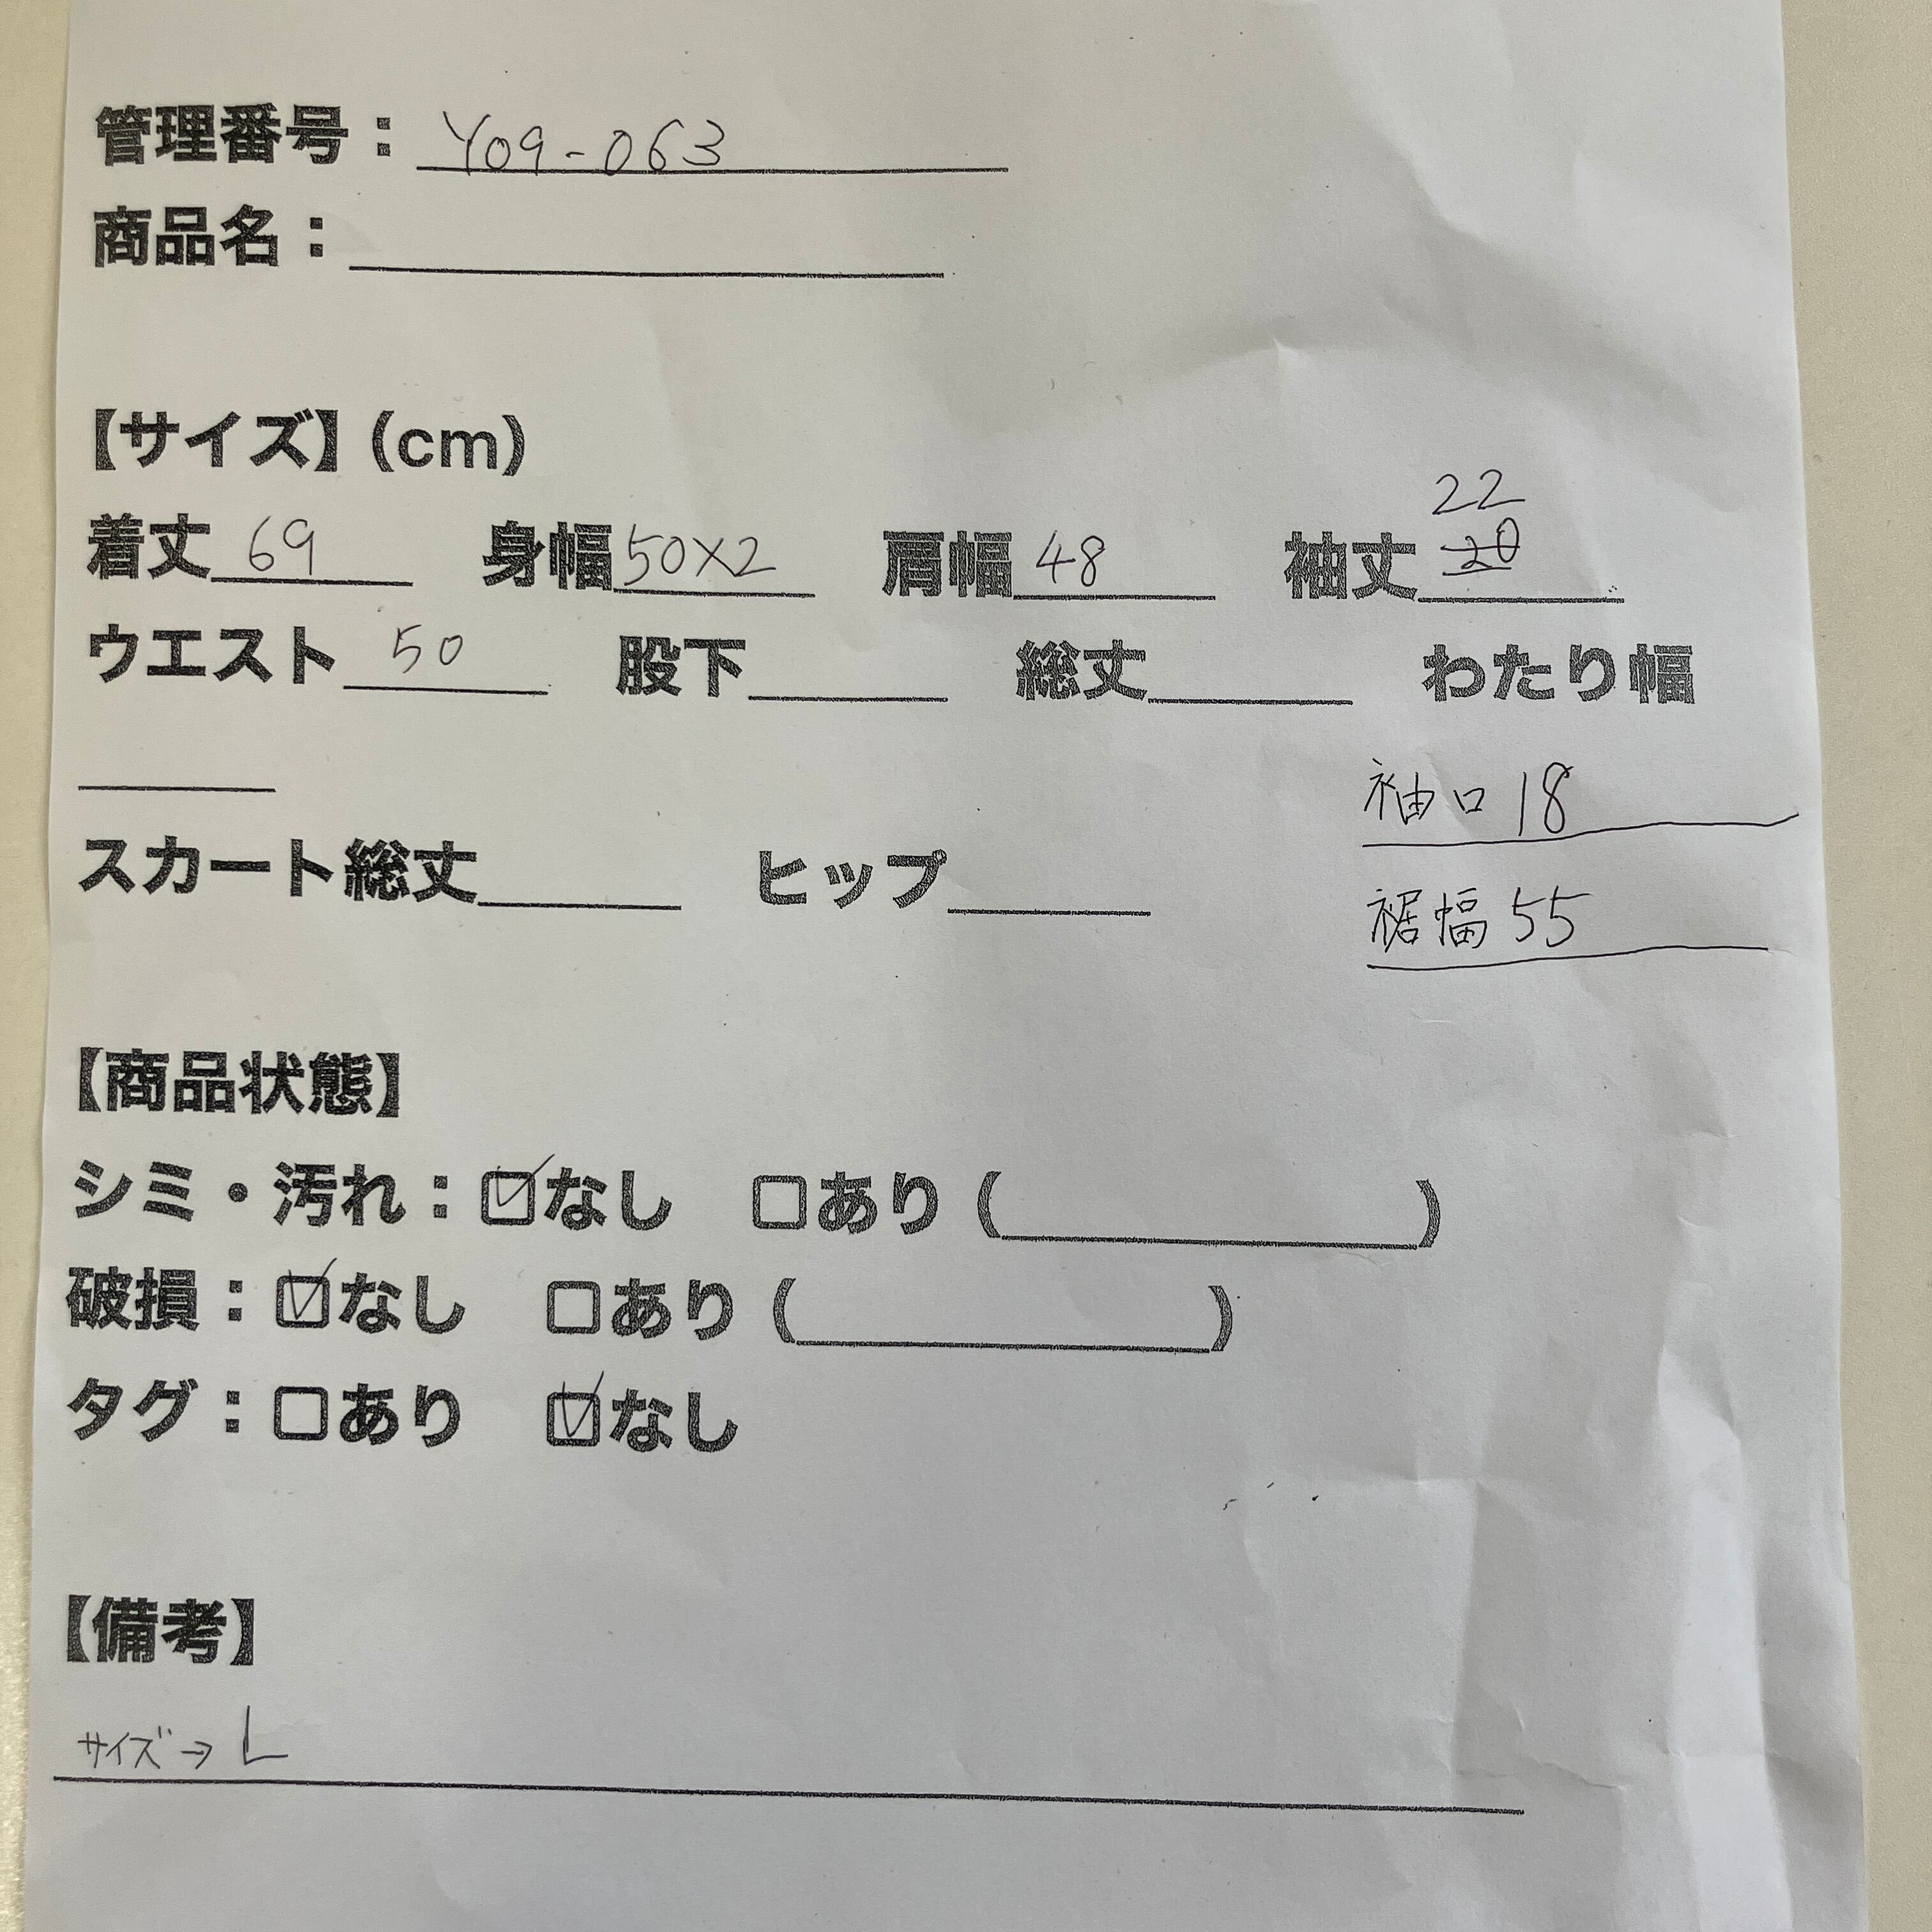 管理番号：Y09-063
商品名：
【サイズ】(cm)
22
着丈 69 身幅 50×2 肩幅 48 袖丈 20
ウエスト 50 股下 総丈 わたり幅
袖口 18
スカート総丈 ヒップ
裾幅 55
【商品状態】
シミ・汚れ：☑なし □あり（　）
破損：☑なし □あり（　）
タグ：□あり ☑なし
【備考】
サイズ→L